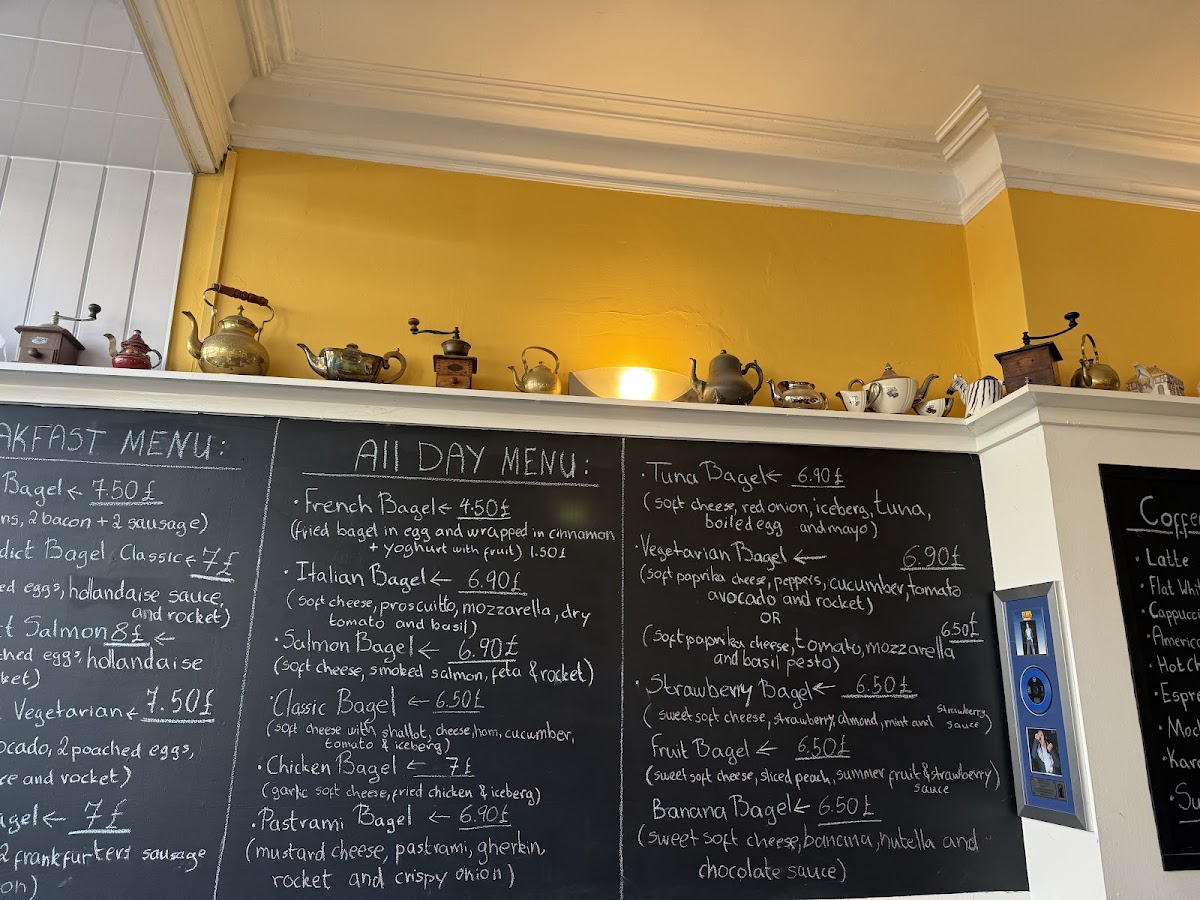 AKFAST MENU:
Bagel ← 7.50£
ns, 2 bacon + 2 sausage)
dict Bagel Classic ← 7£
ed eggs, hollandaise sauce,
and rocket)
t Salmon 8£ ←
ched eggs, hollandaise
ket)
Vegetarian ← 7.50£
ocado, 2 poached eggs,
ce and rocket)
agel ← 7£
2 frankfurters sausage
on)
All DAY MENU:
• French Bagel ← 4.50£
(fried bagel in egg and wrapped in cinnamon
+ yoghurt with fruit) 1.50£
• Italian Bagel ← 6.90£
(soft cheese, proscuitto, mozzarella, dry
tomato and basil)
• Salmon Bagel ← 6.90£
(soft cheese, smoked salmon, feta & rocket)
• Classic Bagel ← 6.50£
(soft cheese with shallot, cheese, ham, cucumber,
tomato & iceberg)
• Chicken Bagel ← 7£
(garlic soft cheese, fried chicken & iceberg)
• Pastrami Bagel ← 6.90£
(mustard cheese, pastrami, gherkin,
rocket and crispy onion)
• Tuna Bagel ← 6.90£
(soft cheese, red onion, iceberg, tuna,
boiled egg and mayo)
• Vegetarian Bagel ← 6.90£
(soft paprika cheese, peppers, cucumber, tomato
avocado and rocket)
OR
6.50£
(soft paprika cheese, tomato, mozzarella
and basil pesto)
• Strawberry Bagel ← 6.50£
(sweet soft cheese, strawberry, almond, mint and strawberry
sauce)
Fruit Bagel ← 6.50£
(sweet soft cheese, sliced peach, summer fruit & strawberry)
sauce
Banana Bagel ← 6.50£
(sweet soft cheese, banana, nutella and
chocolate sauce)
Coffee
• Latte
• Flat Whi
• Cappucc
• America
• Hot Ch
• Espre
• Moch
• Kara
• Su